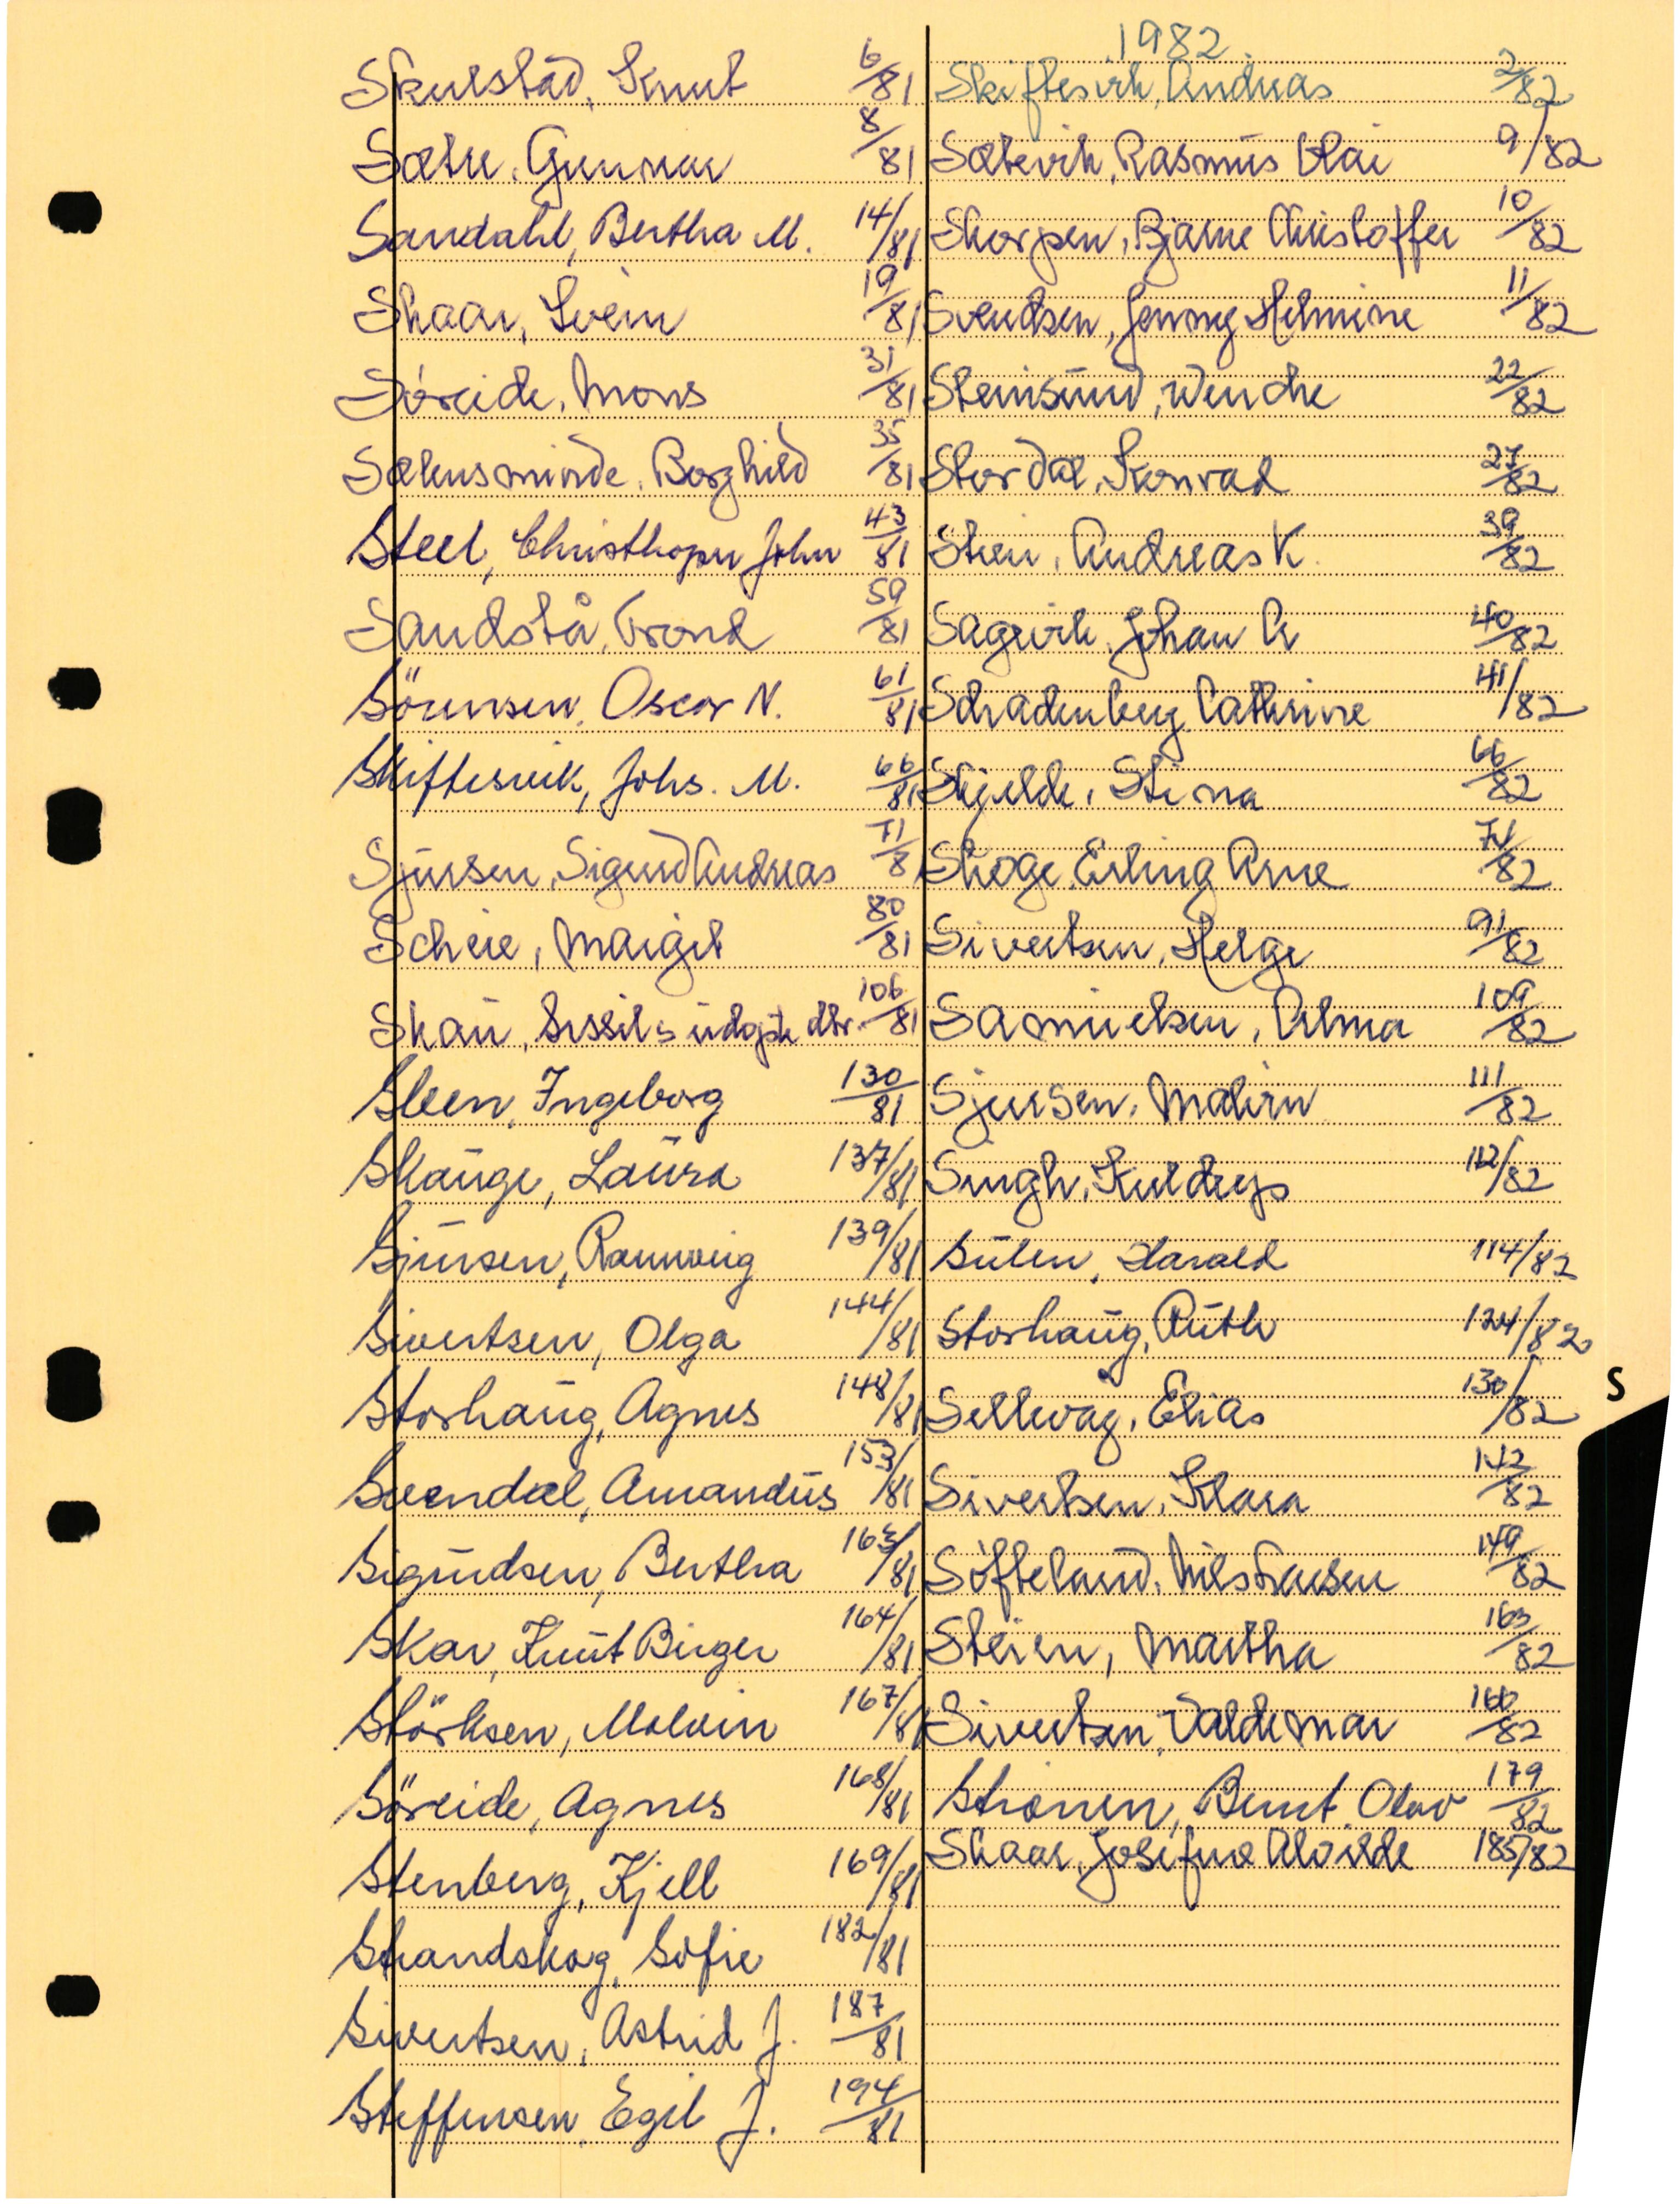 Skulstad, Knut 6/81
Sætre, Gunnar 8/81
Sandahl, Bertha M. 14/81
Skaar, Svein 19/81
Söreide, Mons 31/81
Sælensminde, Borghild 35/81
Steel, Christhoper John 43/81
Sandstå, Trond 59/81
Sörensen, Oscar N. 61/81
Skiftesvik, Johs. M. 66/81
Sjursen, Sigurd Andreas 71/81
Scheie, Margit 80/81
Skau, Sissils udøpte dtr. 106/81
Steen, Ingeborg 130/81
Skauge, Laura 137/81
Sjursen, Rannveig 139/81
Sivertsen, Olga 144/81
Storhaug, Agnes 148/81
Svendal, Amandus 153/81
Sigurdsen, Bertha 163/81
Skar, Knut Birger 164/81
Störksen, Malvin 167/81
Söreide, Agnes 168/81
Stenberg, Kjell 169/81
Strandskog, Sofie 182/81
Sivertsen, Astrid J. 187/81
Steffensen, Egil J. 194/81
1982.
Skiftesvik, Andreas 2/82
Sætervik, Rasmus 9/82
Skorpen, Bjarne Christoffer 10/82
Svendsen, Jenny Helmine 11/82
Steinsund, Wenche 22/82
Stordal, Konrad 27/82
Andreas K. 39/82
Sagevik, Johan A 40/82
Schadenberg Cathrine 41/82
Skjelde, Stina 66/82
Skoge, Erling Arne 74/82
Sivertsen, Helge 91/82
Samuelsen, Alma 109/82
Sjursen, Malvin 111/82
Singh, 112/82
Sulen, Harald 114/82
Storhaug, Ruth 124/82
Sellevåg, Elias 130/82
Sivertsen, Klara 142/82
Söfteland, Nils 149/82
Steien, Martha 163/82
Sivertsen, Valdemar 166/82
Strönen, Bernt Olav 179/82
Skaar, Josefine Alvilde 185/82
S